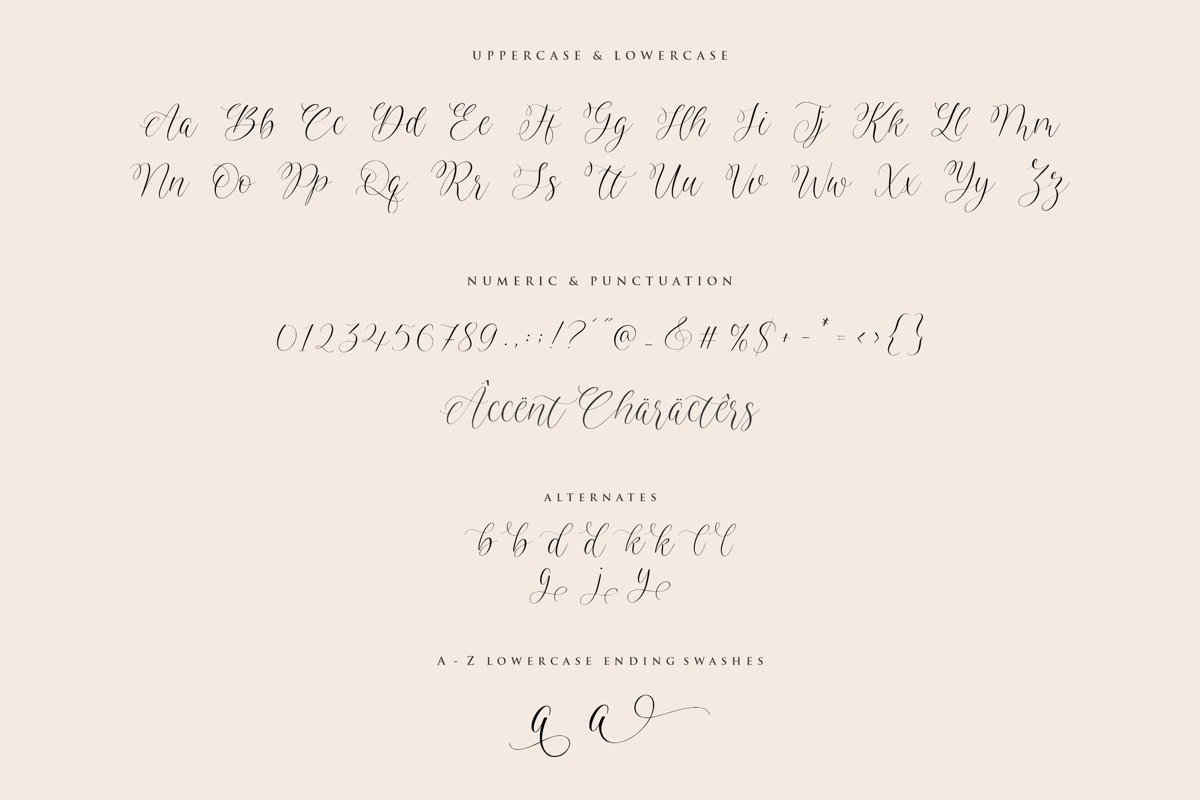 UPPERCASE & LOWERCASE
Aa Bb Cc Dd Ee Ff Gg Hh Ii Jj Kk Ll Mm
Nn Oo Pp Qq Rr Ss Tt Uu Vv Ww Xx Yy Zz
NUMERIC & PUNCTUATION
0123456789.,:;!?'"@_&#%$+-*=<>{}
Âccënt Chäräctêrs
ALTERNATES
b b d d k k l l
g j y
A - Z LOWERCASE ENDING SWASHES
a a